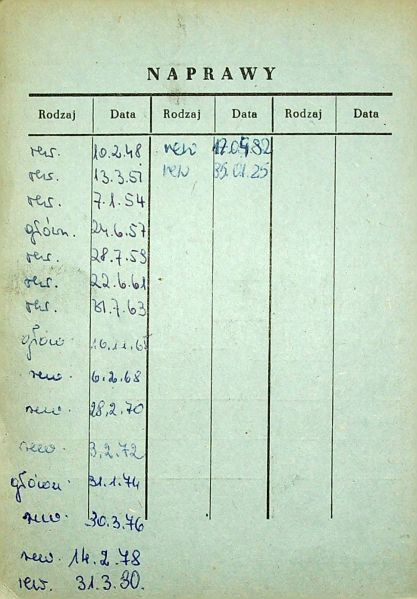 NAPRAWY
Rodzaj Data Rodzaj Data Rodzaj Data
rew. 10.2.48 rew 12.04.82
rew. 13.3.51 rew 85.01.25
rew. 7.1.54
główn. 24.6.57
rew. 28.7.59
rew. 22.6.61
rew. 31.7.63
główn. 16.11.65
rew. 6.2.68
rew 28.2.70
rew 3.2.72
główn. 31.1.74
rew 30.3.76
rew. 14.2.78
rew. 31.3.30.